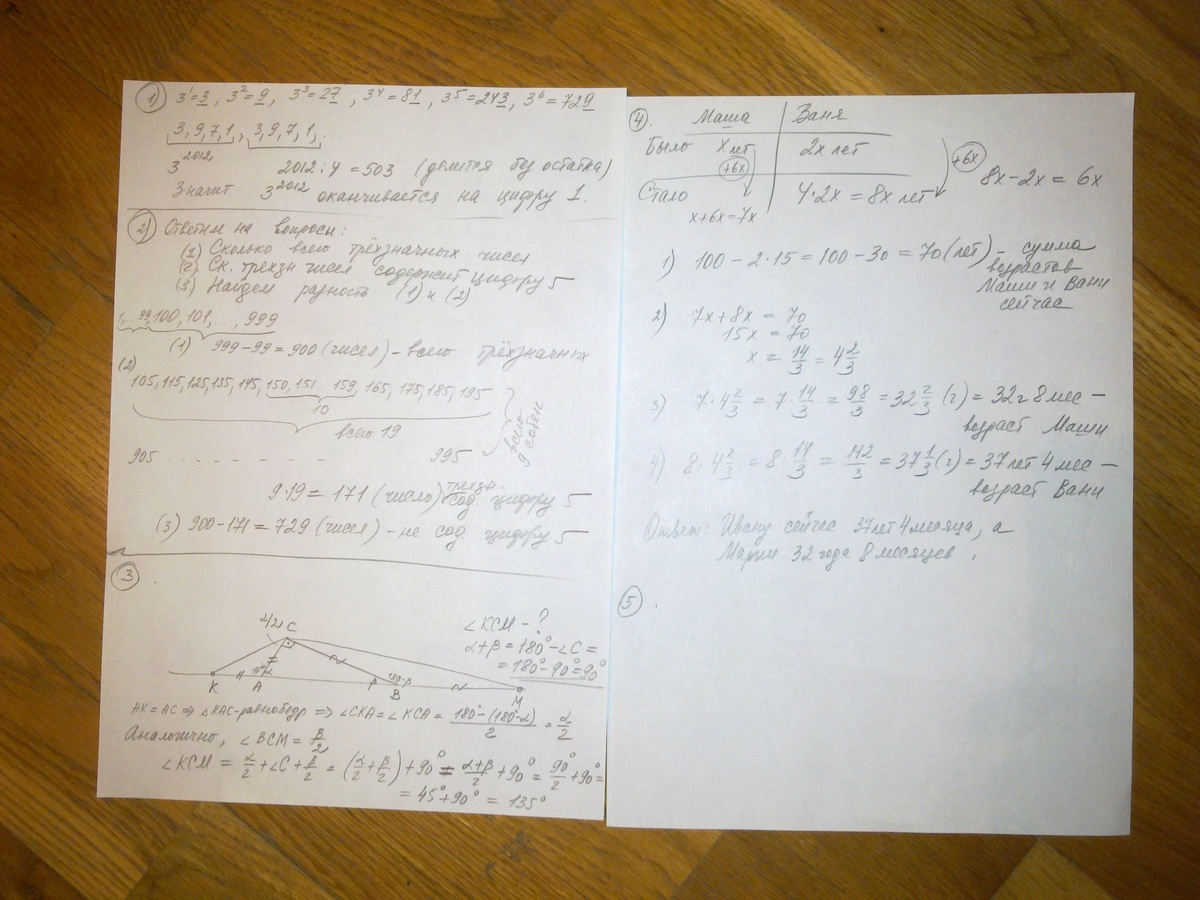 1) 3¹=3, 3²=9, 3³=27, 3⁴=81, 3⁵=243, 3⁶=729
3,9,7,1, 3,9,7,1, ...
3²⁰¹² 2012:4=503 (делится без остатка)
Значит 3²⁰¹² оканчивается на цифру 1.
2) Ответим на вопросы:
(1) Сколько всего трёхзначных чисел
(2) Ск. трехзн. чисел содержит цифру 5
(3) Найдем разность (1) и (2)
1,...99,100,101,..., 999
(1) 999-99=900 (чисел) - всего трёхзначных
(2)
105,115,125,135,145,150,151 159,165,175,185,195
10
всего 19
всего 9 сотен
905 - - - - - - - 995
9·19=171 (число) трехзн. сод. цифру 5
(3) 900-171=729 (чисел) - не сод. цифру 5
3
∠KCM - ?
α+β=180°-∠C=
=180°-90°=90°
α/2 C
α
β 180-β
K A B M
AK=AC ⇒ △KAC-равнобедр ⇒ ∠CKA=∠KCA= (180°-(180°-α))/2 = α/2
Аналогично, ∠BCM=β/2
∠KCM = α/2+∠C+β/2 = (α/2+β/2)+90° = (α+β)/2+90° = 90°/2+90°=
= 45°+90° = 135°
4). Маша Ваня
Было x лет 2x лет
+6x +6x
8x-2x=6x
Стало 4·2x=8x лет
x+6x=7x
1) 100-2·15=100-30=70 (лет) - сумма
возрастов
Маши и Вани
сейчас
2) 7x+8x=70
15x=70
x=14/3=4 2/3
3) 7·4 2/3=7·14/3=98/3=32 2/3 (г)=32г 8 мес -
возраст Маши
4) 8·4 2/3=8·14/3=112/3=37 1/3 (г)=37лет 4 мес -
возраст Вани
Ответ: Ивану сейчас 37 лет 4 месяца, а
Марии 32 года 8 месяцев.
5.